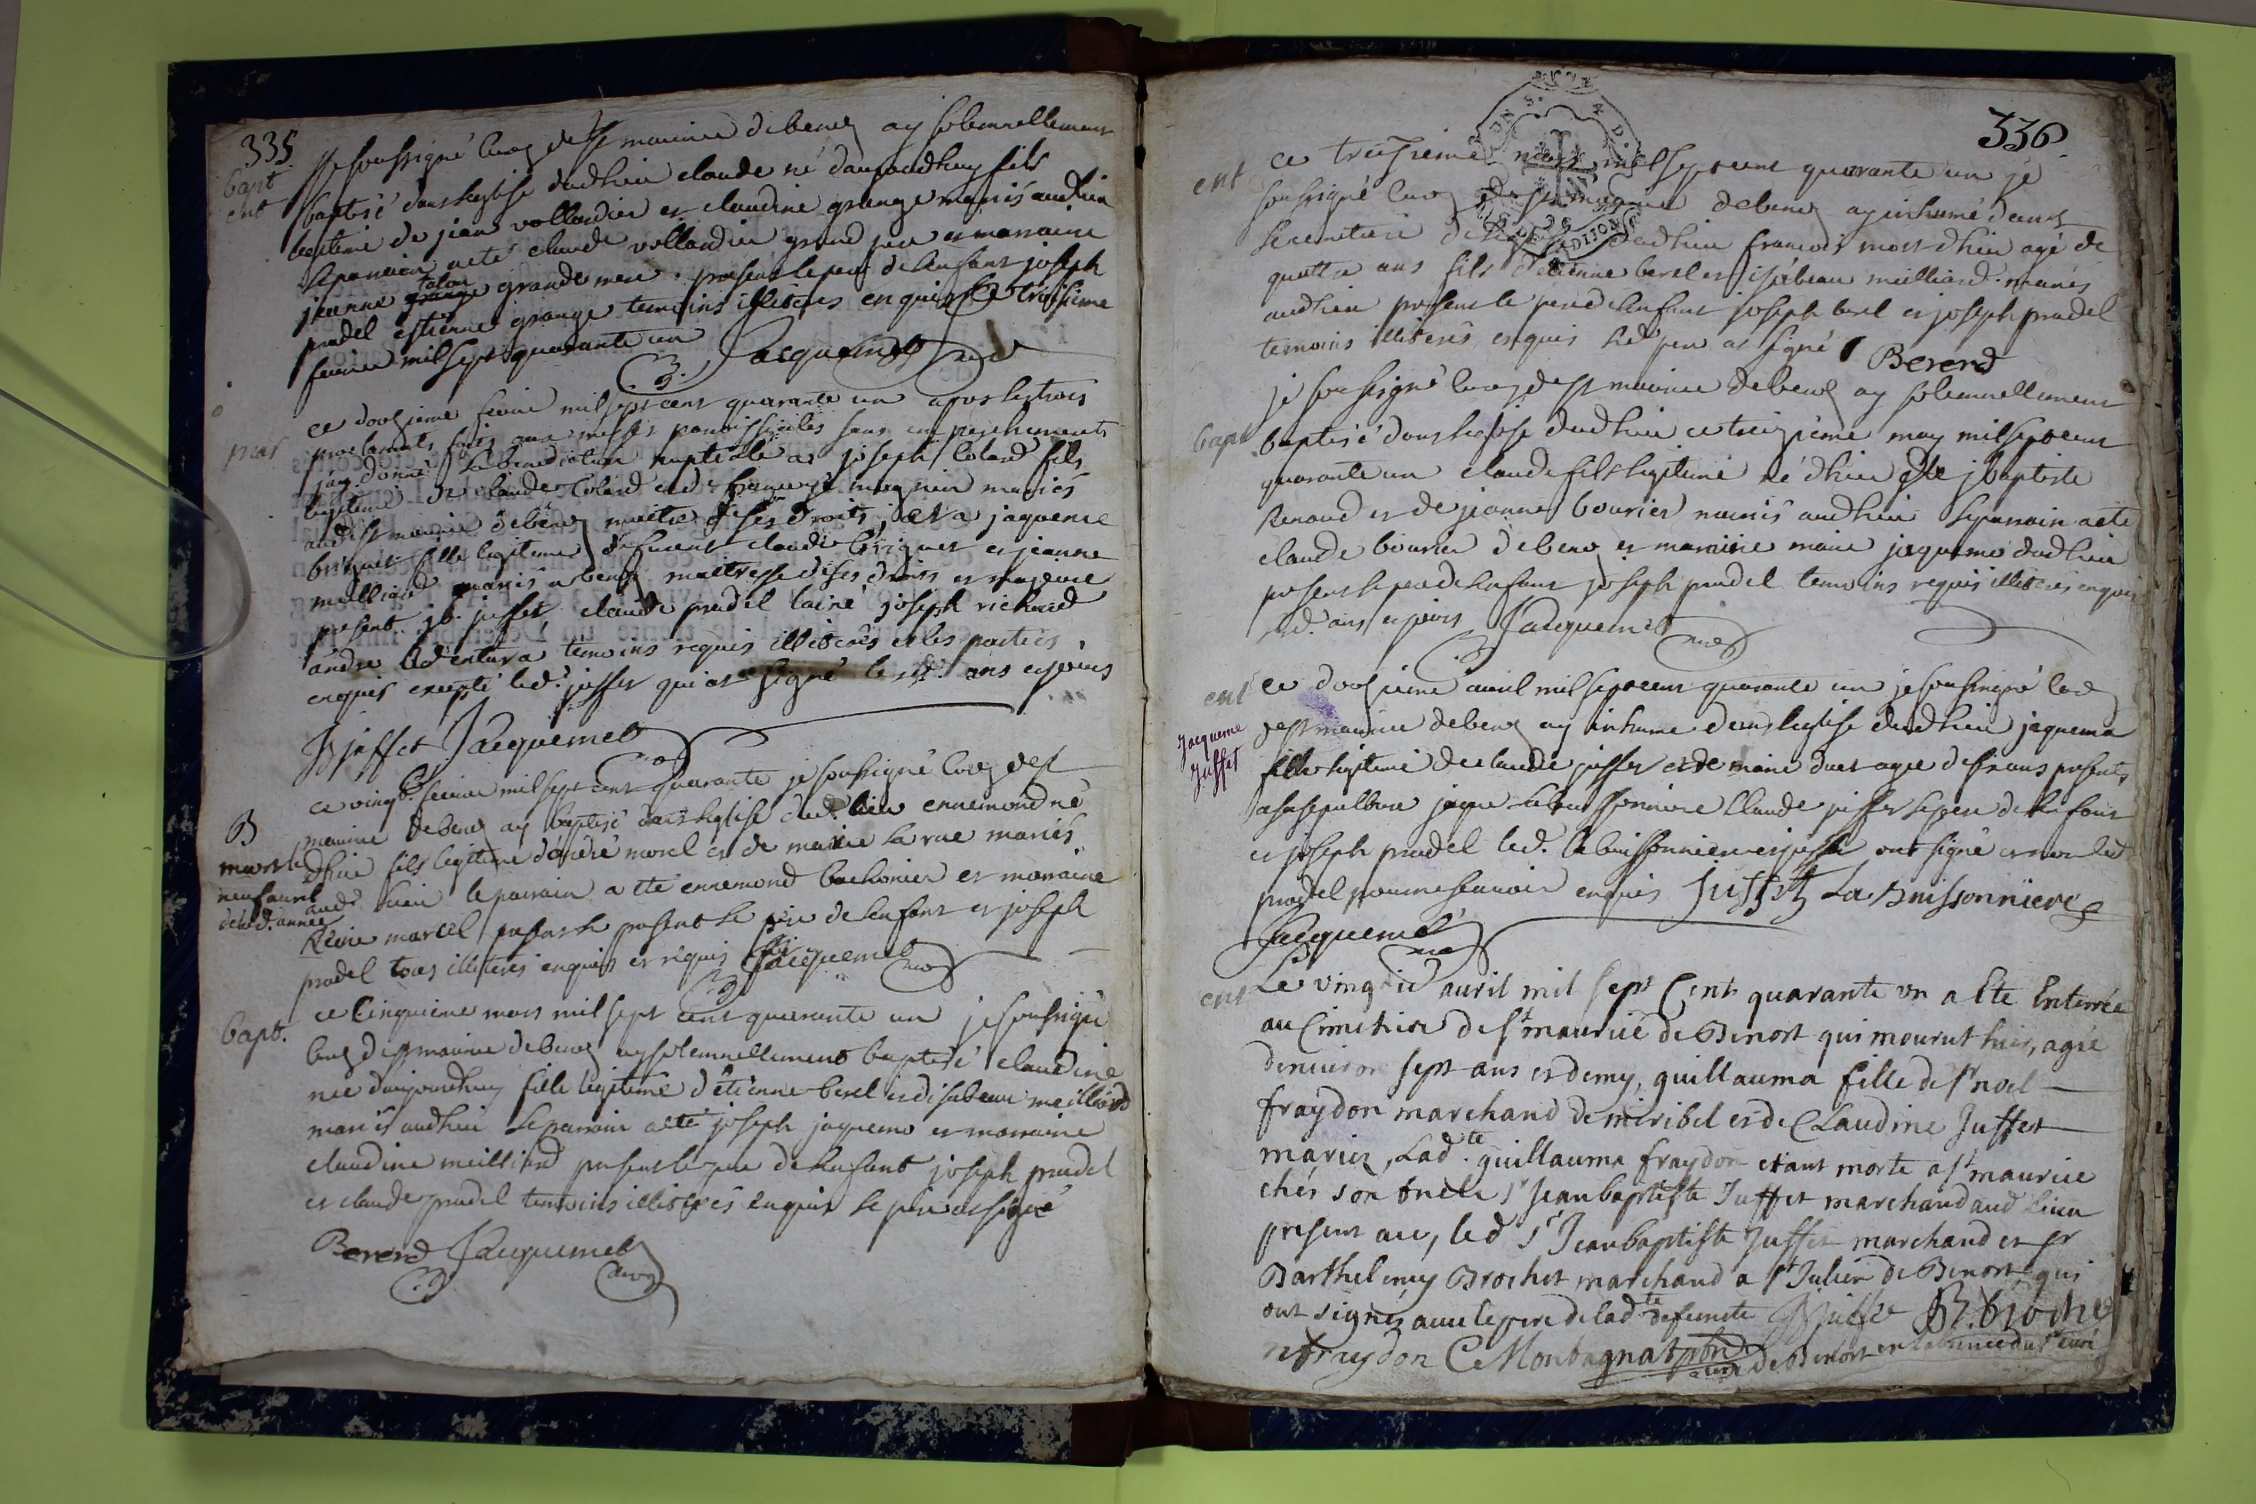 335
bapt
ent
Je soussigné curé de st maurice de beno ay solemnellement
baptisé dans leglise dudlieu claude né daujourdhuy fils
legitime de jean vollandier et claudine grange mariés audlieu
le parrain a eté claude vollandier grand pere et marraine
jeanne grange talon grande mere. present le pere de lenfant joseph
pradel estienne grange temoins illiterés enquis Ce troisieme
fevrier mil sept quarante un
Jacquemet curé
ce doozieme fevrier mil sept cent quarante un apres les trois
proclamats faits aux messes parroissiales sans empechements
jay donné la benediction nuptialle a joseph Colard fils
legitime de claude Colard et de françoise magnin mariés
aud st maurice de beno maitre de ses droits, et a jaqueme
briquet fille legitime de claude briquet et jeanne
meilliard mariés a beno maitresse de ses droits et majeure
present jb. juffet, claude pradel lainé joseph richard
andre temoins requis illiterés et les parties
enquis excepté led. juffet qui a signé les d. ans et jours
JB juffet Jacquemet curé
B
mort le
neuf avril
de lad. année
ce vingt fevrier mil sept cent quarante je soussigné curé de st
maurice de beno ay baptisé dans leglise dud. lieu ennemond né
dhier fils legitime dandré morel et de marie la rue mariés
aud. lieu le parrain a eté ennemond bachonier et marraine
Reine marcel present le pere de lenfant et joseph
pradel tous illiterés enquis et requis Jacquemet curé
bapt.
ce Cinquieme mars mil sept cent quarante un je soussigné
curé de st maurice de beno ay solemnellement baptisé claudine
née daujourdhuy fille legitime détienne berel et disabeau meilliard
mariés audlieu le parrain a eté joseph jaquemo et marraine
claudine meilliard present le pere de lenfant joseph pradel
et claude pradel temoins illiterés enquis le pere a signé
Bererd Jacquemet
curé
336
ent
ce treizieme mars mil sept cent quarante un je
soussigné curé de st maurice de beno ay inhumé dans
le cemetiere de leglise dudlieu francois mort dhier agé de
quattre ans fils détienne berel et isabeau meilliard mariés
audlieu present le pere de lenfant joseph berel et joseph pradel
temoins illiterés enquis le pere a signé Bererd
bapt
je soussigné curé de st maurice de beno ay solemnellement
baptisé dans leglise dudlieu ce treizieme may mil sept cent
quarante un claude fils legitime né dhier de jbaptiste
Renaud et de jeanne bourier mariés audlieu le parrain a eté
claude bourier de beno et marraine marie jaqueme dudlieu
present le pere de lenfant joseph pradel temoins requis illiterés enquis
les d. ans et jours Jacquemet curé
ent
Jacqueme
Juffet
ce doozieme avril mil sept cent quarante un je soussigné curé
de st maurice de beno ay inhumé dans leglise dudlieu jaquema
fille legitime de claude juffet et de marie duet agée de ans presents
a sa sepulture jaque labuissonniere Claude juffet le pere de lenfant
et joseph pradel led. labuissonniere et juffet ont signé et non led
pradel pour ne scavoir enquis Juffet La Buissonniere
Jacquemet
curé
ent
Le vingtie avril mil sept Cent quarante un a Ete Enterrée
au Cimetiere de st maurice de Benost qui mourut hier, agée
denviron sept ans et demy, guillauma fille de sr noel
fraydon marchand de miribel et de Claudine Juffet
mariez, Ladte guillauma fraydon etant morte a st maurice
chés son oncle sr Jean baptiste Juffet marchand aud lieu
present avec, led sr Jean baptiste Juffet marchand et sr
Barthelemy Brochet marchand a st Julien de Benost qui
ont signés avec le pere de ladte defunte JB Juffet B. Brochet
n fraydon C Montagnat ptre
curé de Benost en labsence du sr curé